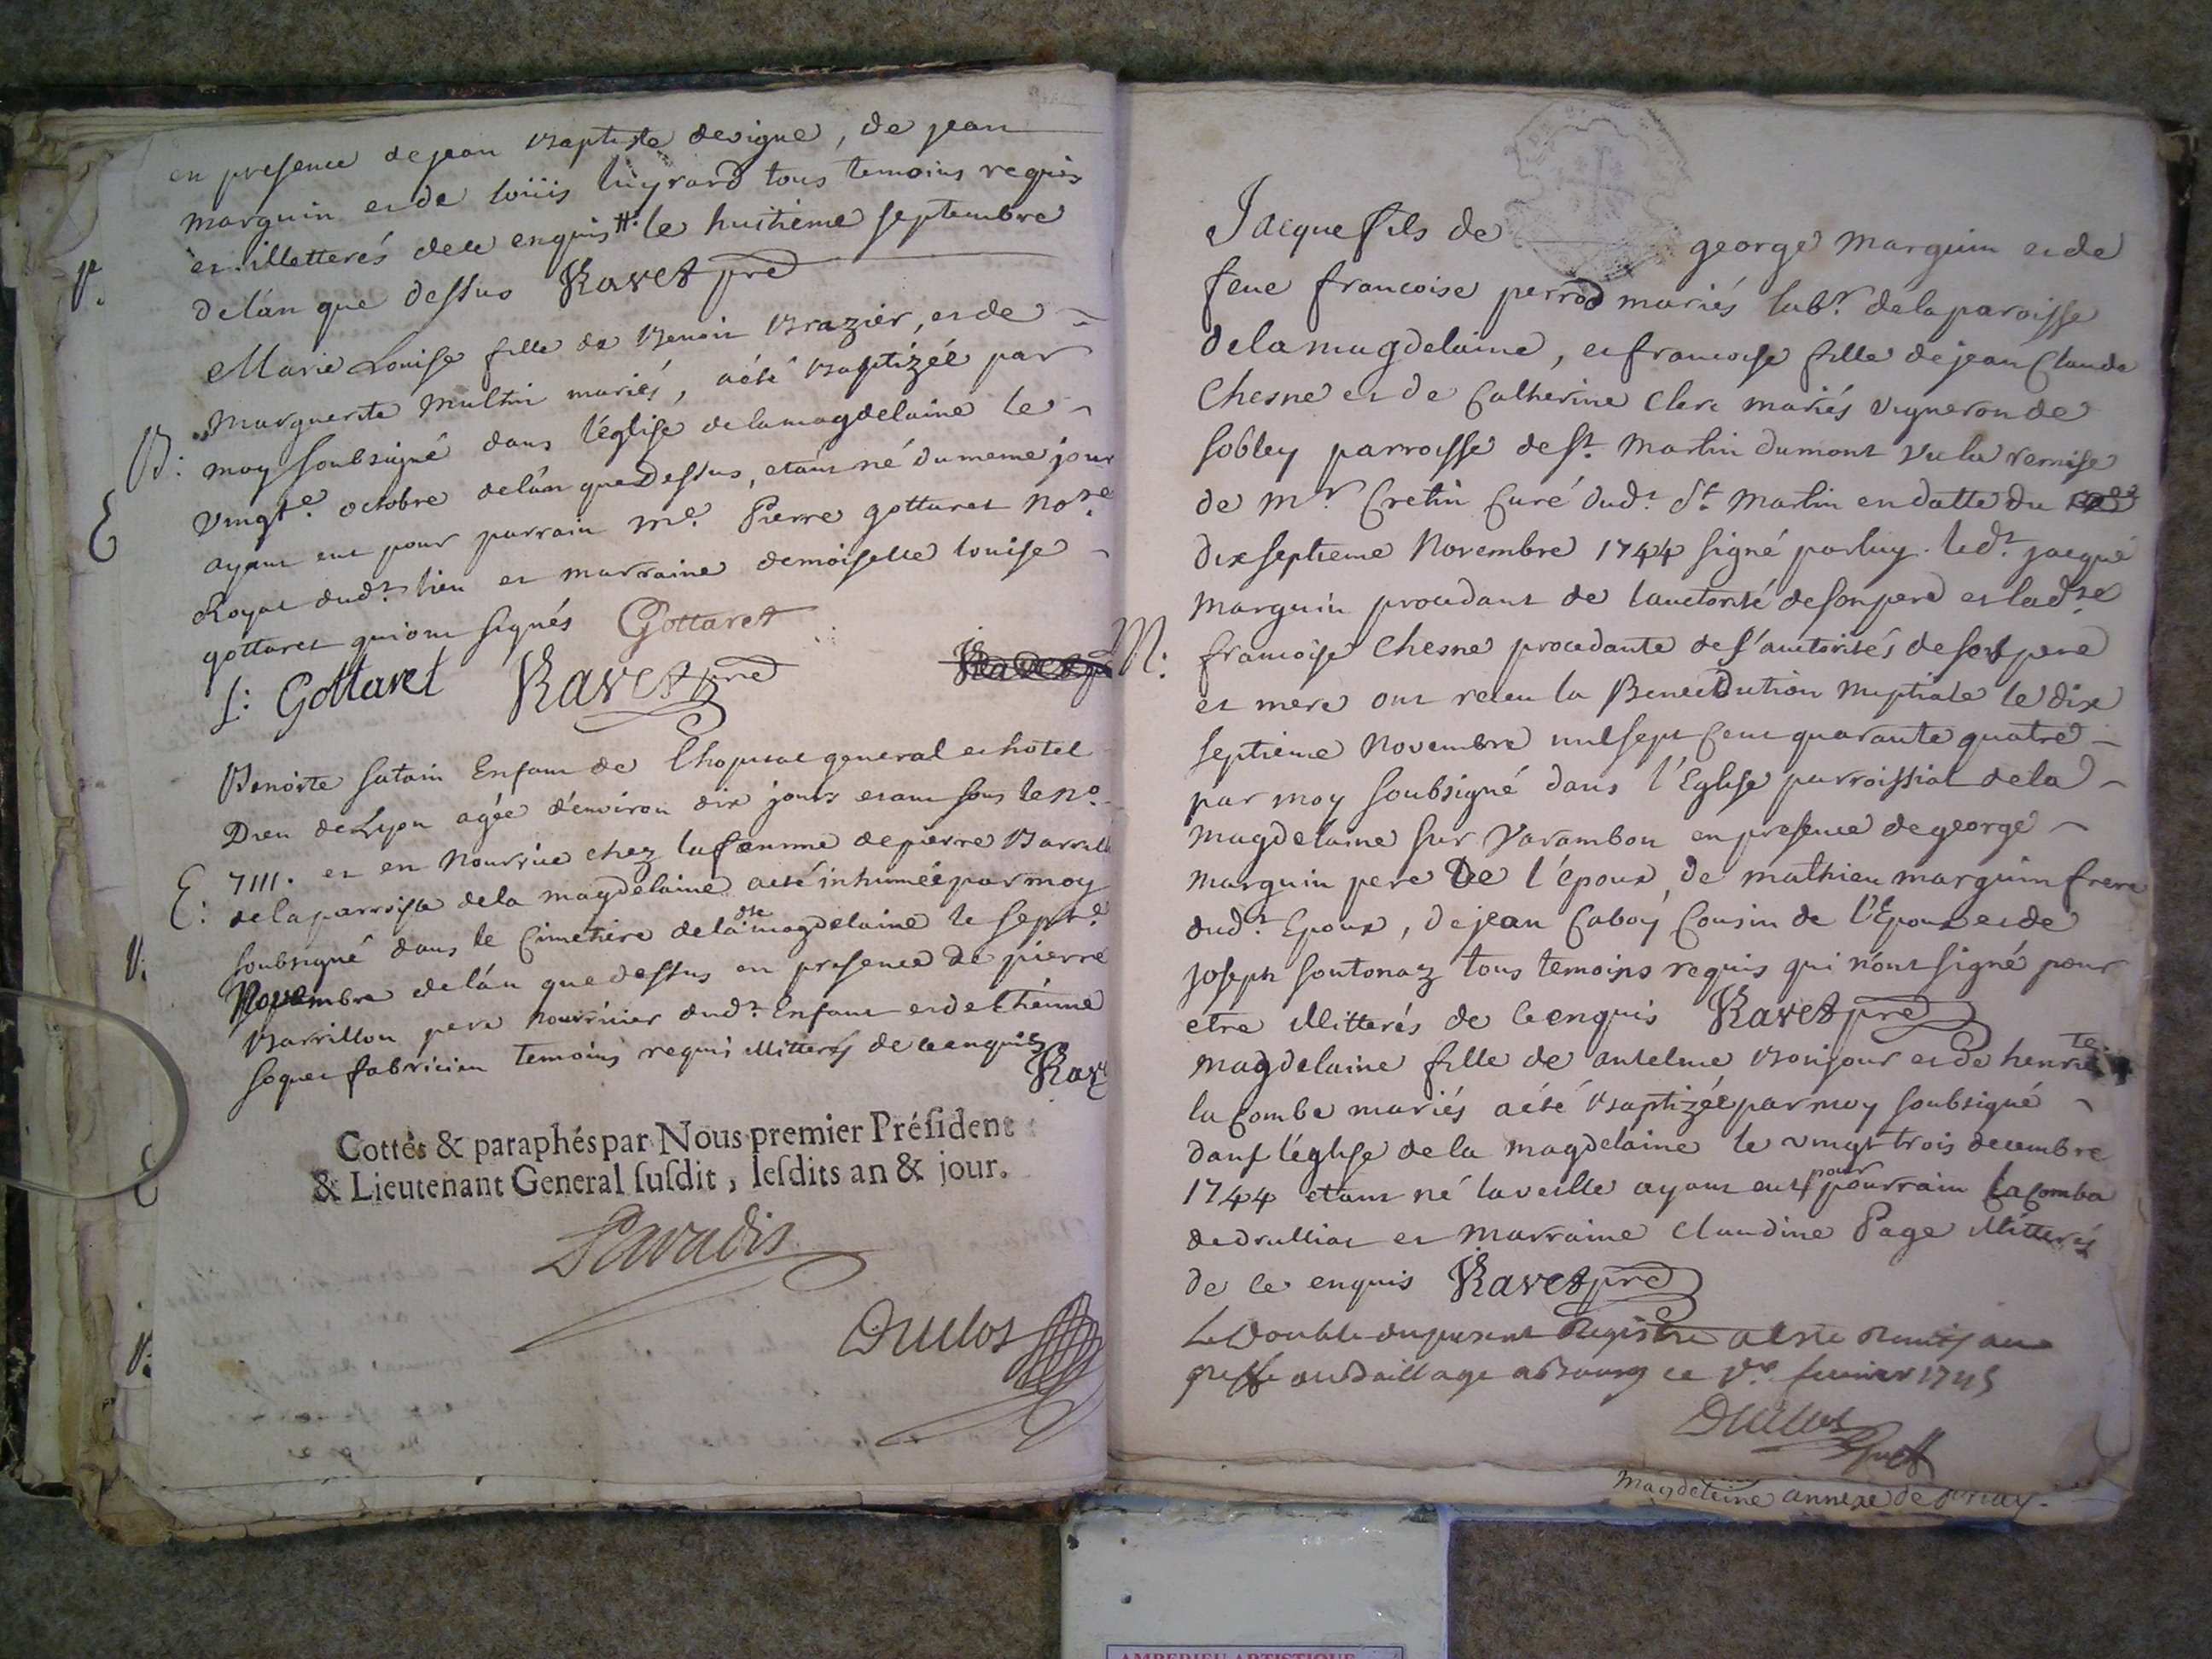 en presence de jean Baptiste devigne, de jean
marguin et de loüis lugrard tous temoins requis
et illetterés de ce enquis le huitième septembre
de l'an que dessus Ravet pre
Marie Louise fille de Benoit Brazier, et de
Marguerite Multin mariés, a été baptizée par
B: moy soubsigné dans l'église de la magdelaine le
vingt.e octobre de l'an que dessus, etant né du meme jour
ayant eut pour parrain me. Pierre gottaret No.re
Royal dud.t lieu et marraine demoiselle louise
gottaret qui ont signés Gottaret
L: Gottaret Ravet pre
Benoite satain Enfant de l'hopital general et hotel
Dieu de Lyon agée d'environ dix jours etant sous le no.
7111. et en Nourrice chez la femme de pierre Barrillon
E: de la parroisse de la magdelaine a eté inhumée par moy
soubsigné dans le Cimetiere de la dte magdelaine le sept.e
Novembre de l'an que dessus en presence de pierre
Barrillon pere nourricier dud.t Enfant et de Ethienne
soquet fabricien temoins requis illitterés de ce enquis
Rav
Cottés & paraphés par Nous premier Préſident
& Lieutenant General ſuſdit, leſdits an & jour.
Duclos
Jacque fils de george Marguin et de
feue francoise perrod mariés lab.r de la paroisse
de la magdelaine, et francoise fille de jean Claude
Chesne et de Catherine Clerc mariés vigneron de
sobley parroisse de St. Martin du mont vu la remise
de Mr. Cretin Curé dud.t St. Martin en datte du
dix septieme Novembre 1744 signé par luy. led.t jacque
Marguin procedant de l'auctorité de son pere et lad.te
M: francoise Chesne procedante de l'auctorités de son pere
et mere ont receu la Benediction Nuptiale le dix
septieme Novembre mil sept cent quarante quatre
par moy soubsigné dans l'Eglise parroissial de la
magdelaine sur Varambon en presence de george
marguin pere De l'époux, de mathieu marguin frere
dud.t Epoux, de jean Caboy Cousin de l'Epoux et de
joseph soutonaz tous temoins requis qui n'ont signé pour
etre illitterés de ce enquis Ravet pre
magdelaine fille de antelme Bonjour et de henrie te
la Combe mariés a été baptizée par moy soubsigné
dans l'église de la magdelaine le vingt trois decembre
1744 etant né la veille ayant eut pour pourrain laComba
de druillat et Marraine Claudine Page illitterés
de ce enquis Ravet pre
Le double du present Registre a esté Remis au
greffe du Baillage a Bourg ce 1er. fevrier 1745
Duclos
Greff
Magdeleine annexe de priay
AMBERIEU ARTISTIQUE